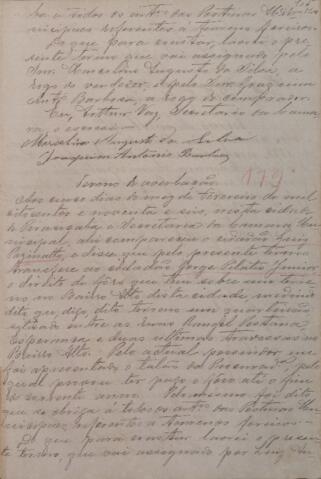 ba a todos os
referentes a terrenos foreiros.
Do que para constar, lavrei o pre-
sente termo que vai assignado pelo
Snr. Marcelino Augusto da Silva, a
rogo do vendedor, e pelo Snr. Joaquim
Antº Barbosa, a rogo do comprador.
Eu, Arthur Vaz, Secretario da Cama-
ra, o escrevi.
Marcelino Augusto da Silva
Joaquim Antonio Barboza
Termo de averbação 179
Aos onze dias do mez de Fevereiro de mil
oitocentos e noventa e seis, nesta cidade
de na Secretaria da Camara Mu-
nicipal, ahi compareceu o cidadão Luiz
e disse que pelo presente termo
transfere ao cidadão Jorge Junior
o direito de fôro que tem sobre um terre-
no no Bairro Alto desta cidade,
dito terreno um quarteirão
entre as ruas Rangel Pestana,
Esperança e duas ultimas travessas no
Bairro Alto. Pelo actual possuidor me
foi apresentado o talão da Procura pelo
qual provou ter pago o fôro até o fim
do corrente anno. Pelo mesmo foi dito
que se obriga a todos os artºs das Posturas Mu-
nicipaes, referentes a terrenos foreiros.
Do que para constar lavrei o presen-
te termo, que vai assignado por Luiz